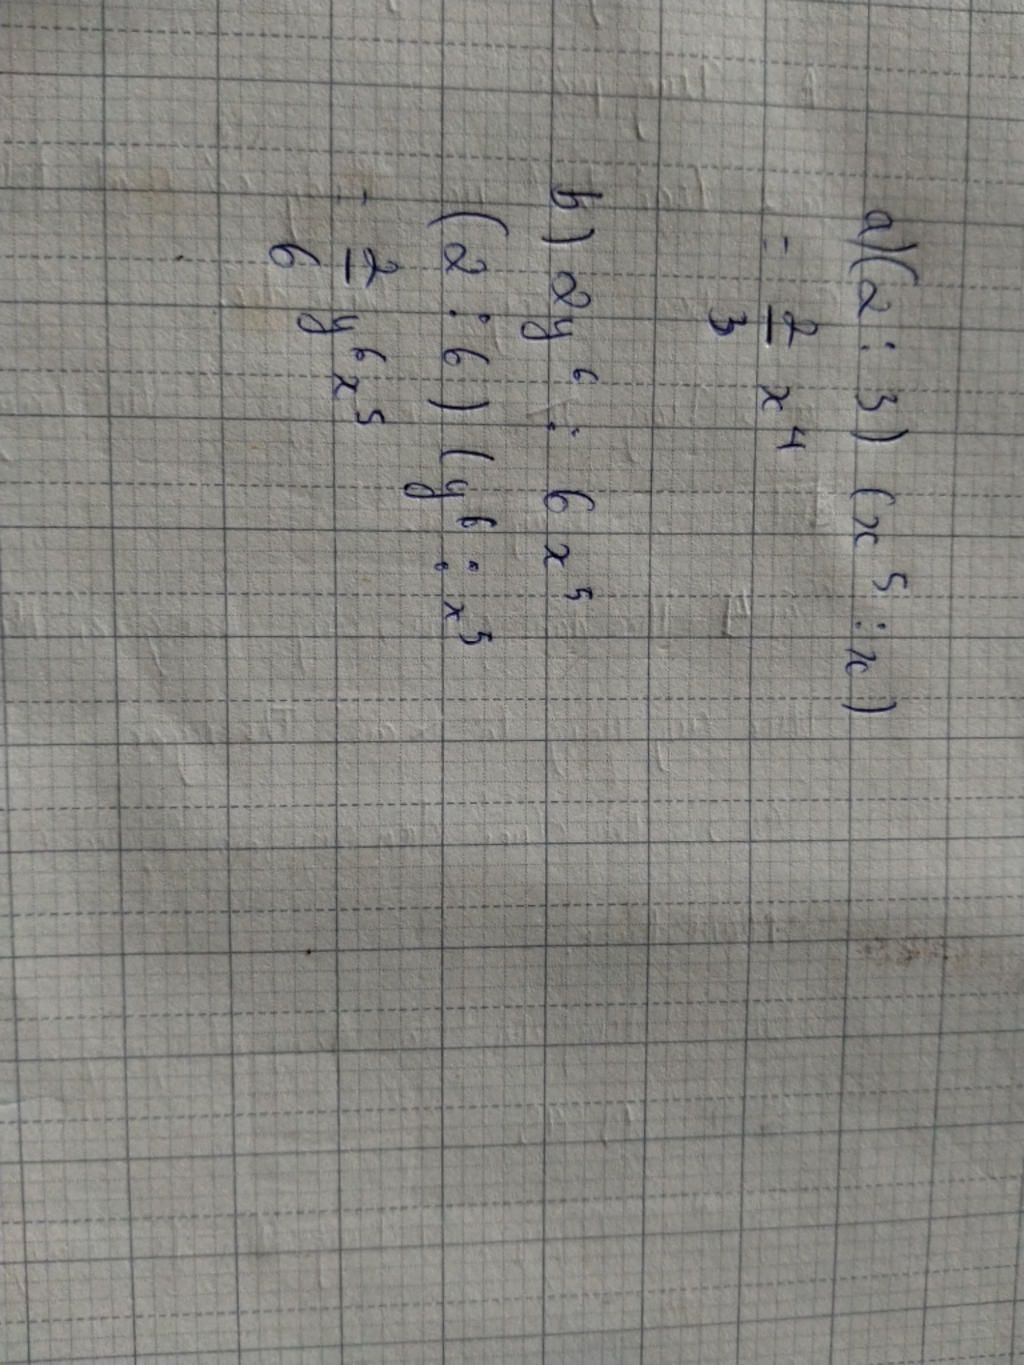 a) (2 : 3) (x⁵ : x)
= 2/3 x⁴
b) 2y⁶ : 6x⁵
(2 : 6) (y⁶ : x⁵
= 2/6 y⁶x⁵